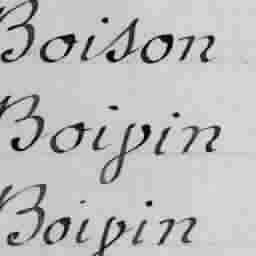 Boison
Boivin
Boivin